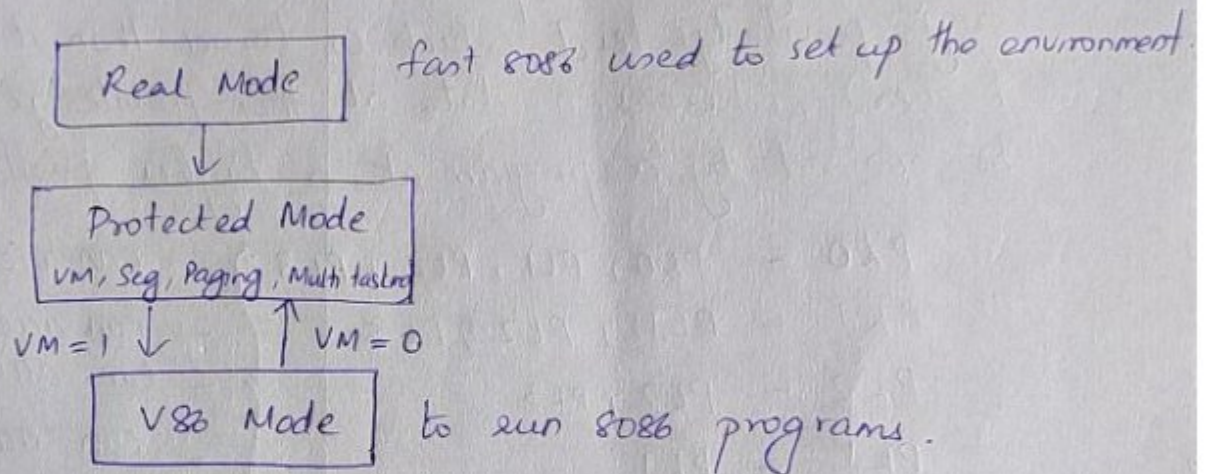 Real Mode
fast 8086 used to set up the environment.
Protected Mode
VM, Seg, Paging, Multi tasking
VM = 1
VM = 0
V86 Mode
to run 8086 programs.